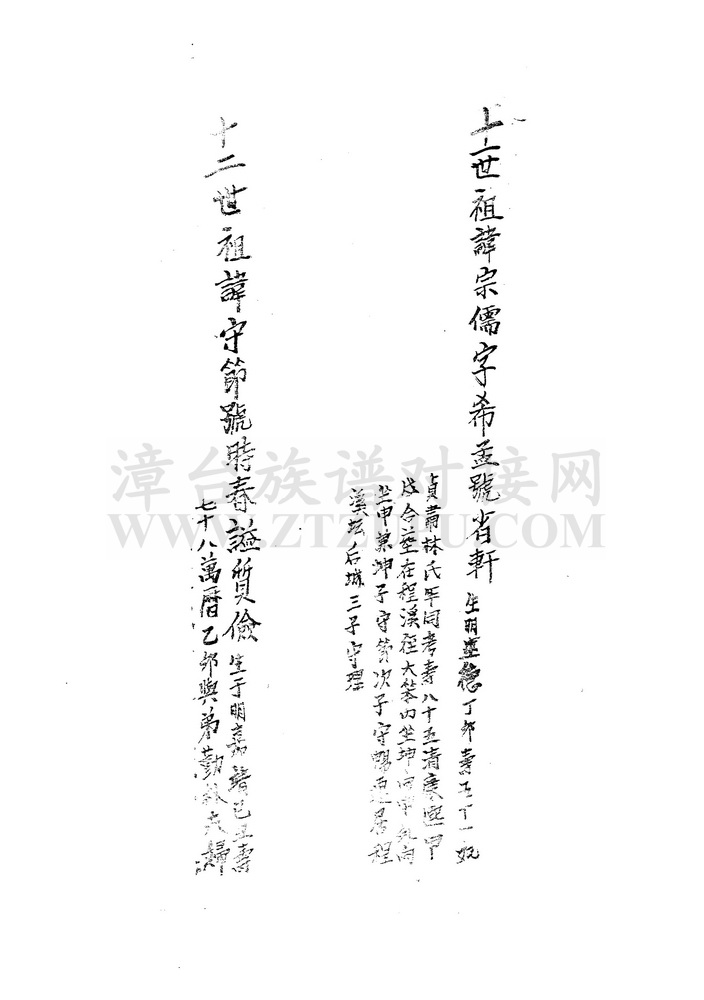 十一世祖諱宗儒字希孟號省軒 生明正德丁卯壽五十一妣
貞肅林氏年同考壽八十五清康熙甲
戌合葬在程溪徑大笨内坐坤向甲
坐申兼坤子守節次子守暢更居程
溪坛后城三子守理
十二世祖諱守節號時春謚質儉 生于明嘉靖己丑壽
七十八萬曆乙卯與弟勤
漳台族谱对接网
WWW.ZTZUPU.COM